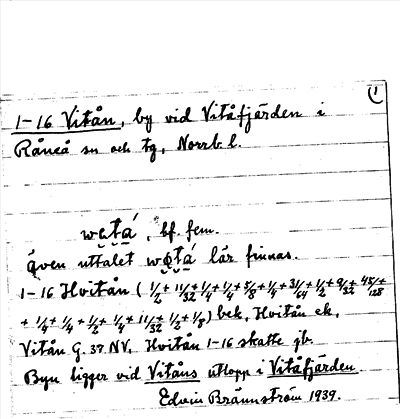 1
1-16 Vitån, by vid Vitåfjärden i
Råneå sn och tg, Norrb l.
bf. fem.
även uttalet lär finnas.
1-16 Hvitån (1/2 + 11/32 + 1/4 + 1/4 + 5/8 + 1/4 + 31/64 + 1/2 + 9/32 + 45/128 +
+ 1/4 + 1/4 + 1/2 + 1/4 + 11/32 + 1/2 + 1/8) bek, Hvitån ek,
Vitån G. 37 NV, Hvitån 1-16 skatte jb.
Byn ligger vid Vitåns utlopp i Vitåfjärden.
Edvin Brännström 1939.